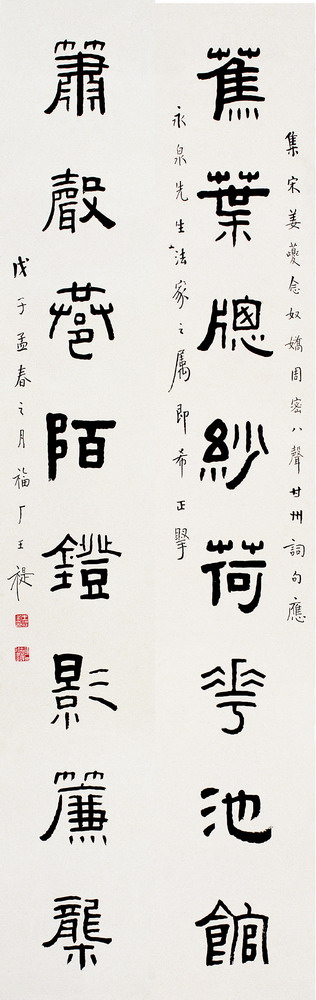 集宋姜夔念奴嬌周密八聲甘州詞句應
蕉葉牕紗荷花池館
永泉先生法家之屬即希正
簫聲巷陌鐙影簾櫳
戊子孟春之月福厂王禔